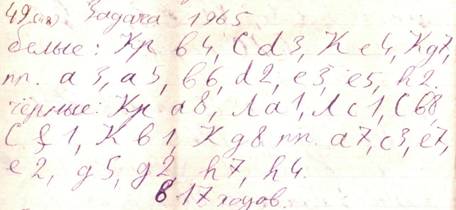 49 Задача 1965
белые: Кр b4, С d3, К e4, К g7,
пп. a3, a5, b6, d2, e3, e5, h2.
чёрные: Кр a8, Л a1, Л c1, С b8,
С f1, К b1, К g8 пп. a7, c3, e7,
e2, g5, g2, h7, h4.
в 17 ходов.